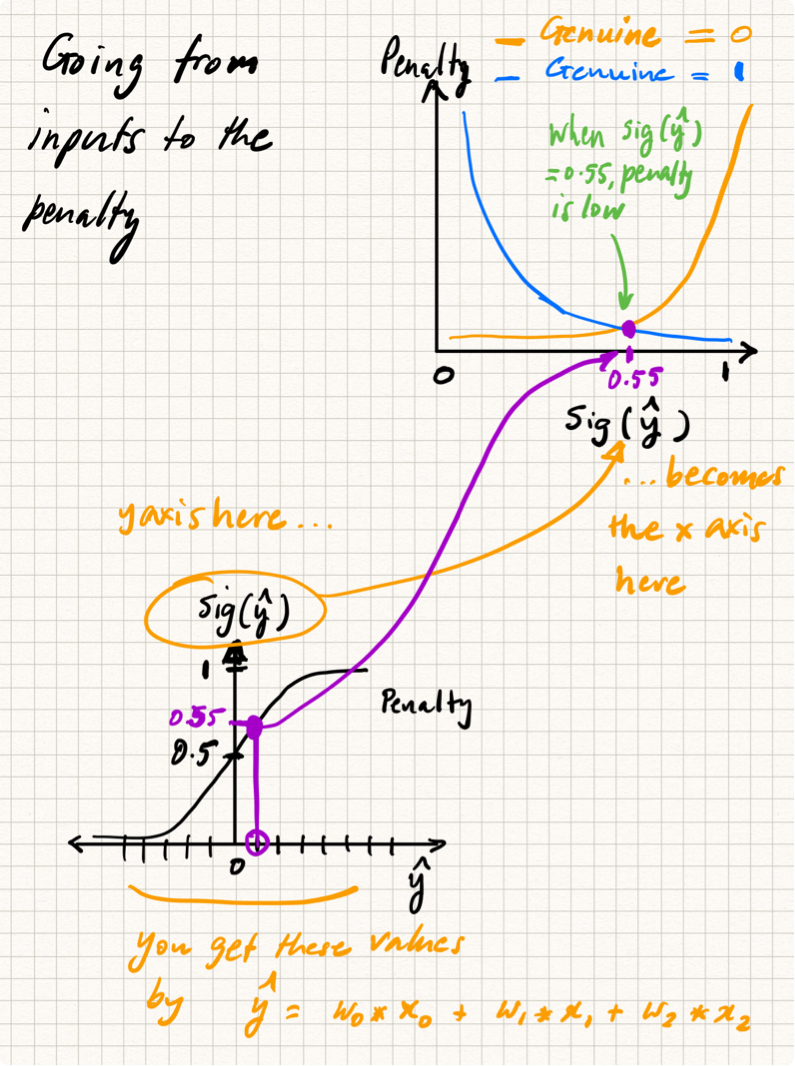 Going from
inputs to the
penalty
Penalty
Genuine = 0
Genuine = 1
when sig(ŷ)
=0.55, penalty
is low
0
0.55
1
Sig(ŷ)
...becomes
the x axis
here
y axis here...
Sig(ŷ)
1
Penalty
0.55
0.5
0
ŷ
You get these values
by ŷ = w₀*x₀ + w₁*x₁ + w₂*x₂